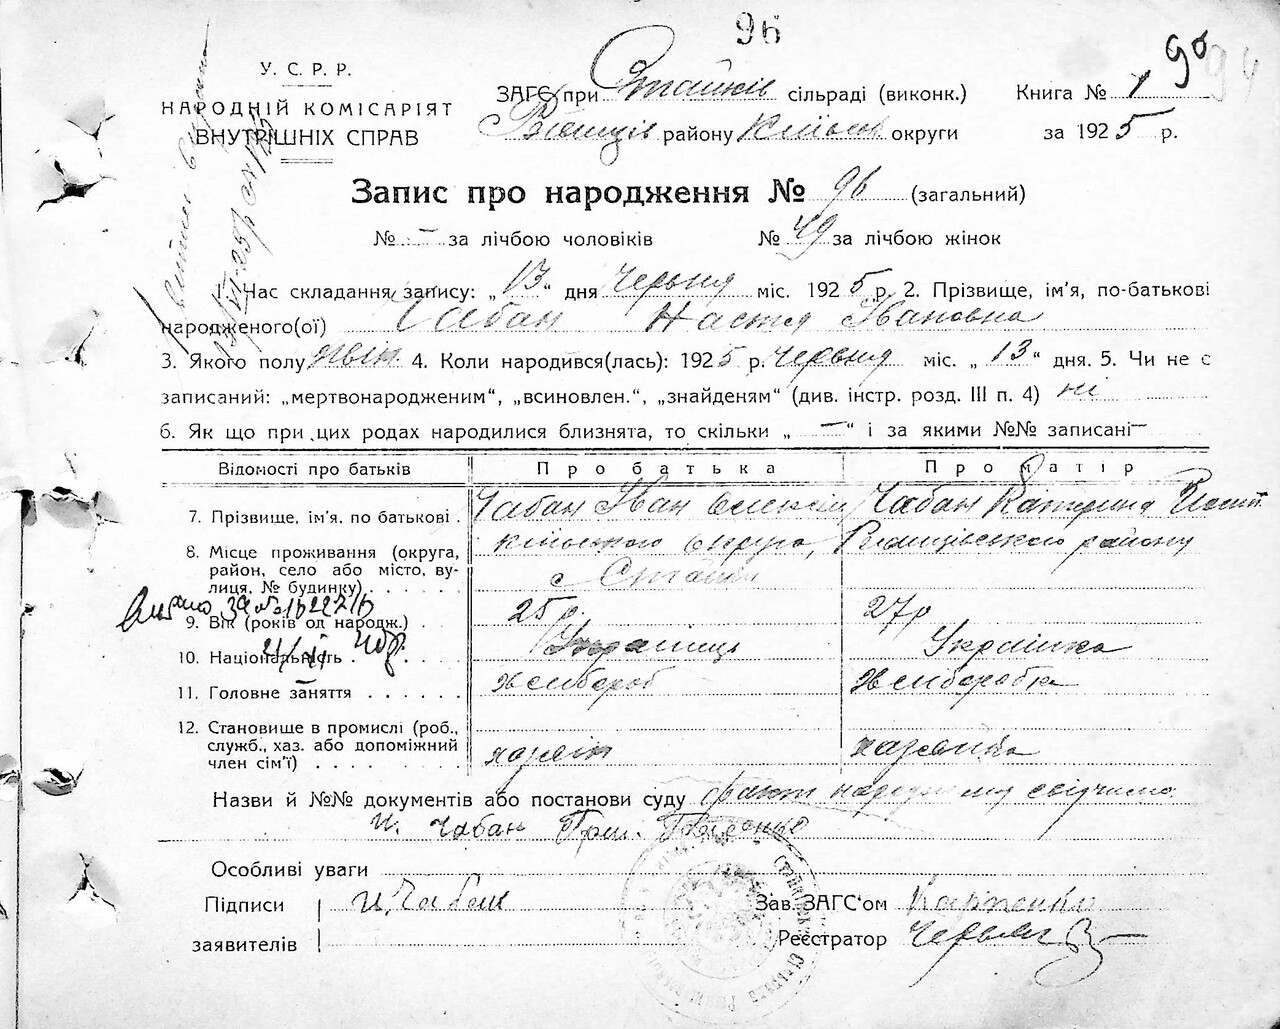 96
90
94
У. С. Р. Р.
НАРОДНІЙ КОМІСАРІЯТ
ВНУТРІШНІХ СПРАВ
ЗАГС при Стайків сільраді (виконк.) Книга № 1
району Київськ округи за 1925 р.
Запис про народження № 96 (загальний)
№ – за лічбою чоловіків № 49 за лічбою жінок
Час складання запису: „13“ дня Червня міс. 1925 р. 2. Прізвище, ім’я, по-батькові
народженого(ої) Чабан Настя Івановна
3. Якого полу жін. 4. Коли народився(лась): 1925 р. Червня міс. „13“ дня. 5. Чи не є
записаний: „мертвонародженим“, „всиновлен.“, „знайденям“ (див. інстр. розд. III п. 4) ні
6. Як що при цих родах народилися близнята, то скільки „—“ і за якими №№ записані —
Відомості про батьків Про батька Про матір
7. Прізвище, ім’я, по батькові . Чабан Іван Олексій Чабан Катерина
8. Місце проживання (округа, район, село або місто, вулиця, № будинку) . . . . . Київського округа, району
с Стайки
9. Вік (років од народж.) . 25р. 27р
10. Національність . . . . . Українець Українка
11. Головне заняття . . . . . . хлібороб хлібробка
12. Становище в промислі (роб.,
служб., хаз. або допоміжний
член сім’ї) . . . . . . . . хазяїн хазяйка
Назви й №№ документів або постанови суду факт народження свідчимо
И. Чабан Гри.
Особливі уваги
Підписи И. Чабан Зав. ЗАГС‘ом Карпенко
заявителів Реєстратор